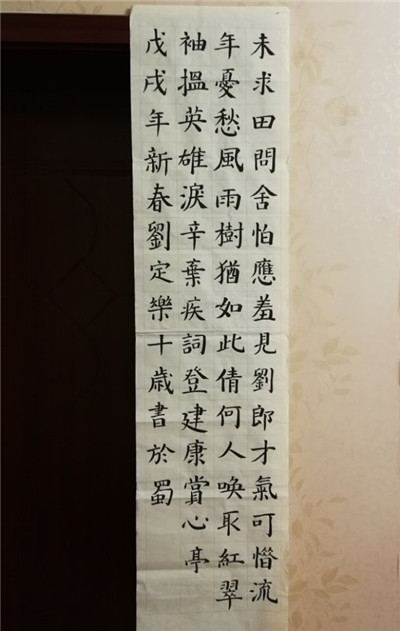 未求田問舍怕應羞見劉郎才氣可惜流
年憂愁風雨樹猶如此倩何人喚取紅翠
袖搵英雄淚辛棄疾詞登建康賞心亭
戊戌年新春劉定樂十歲書於蜀